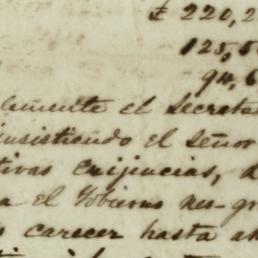 £ 220,2
125,5
94,6
el Secreta
insistiendo el señor
tivas exijencias, d
a el Gobierno
s carecer hasta a